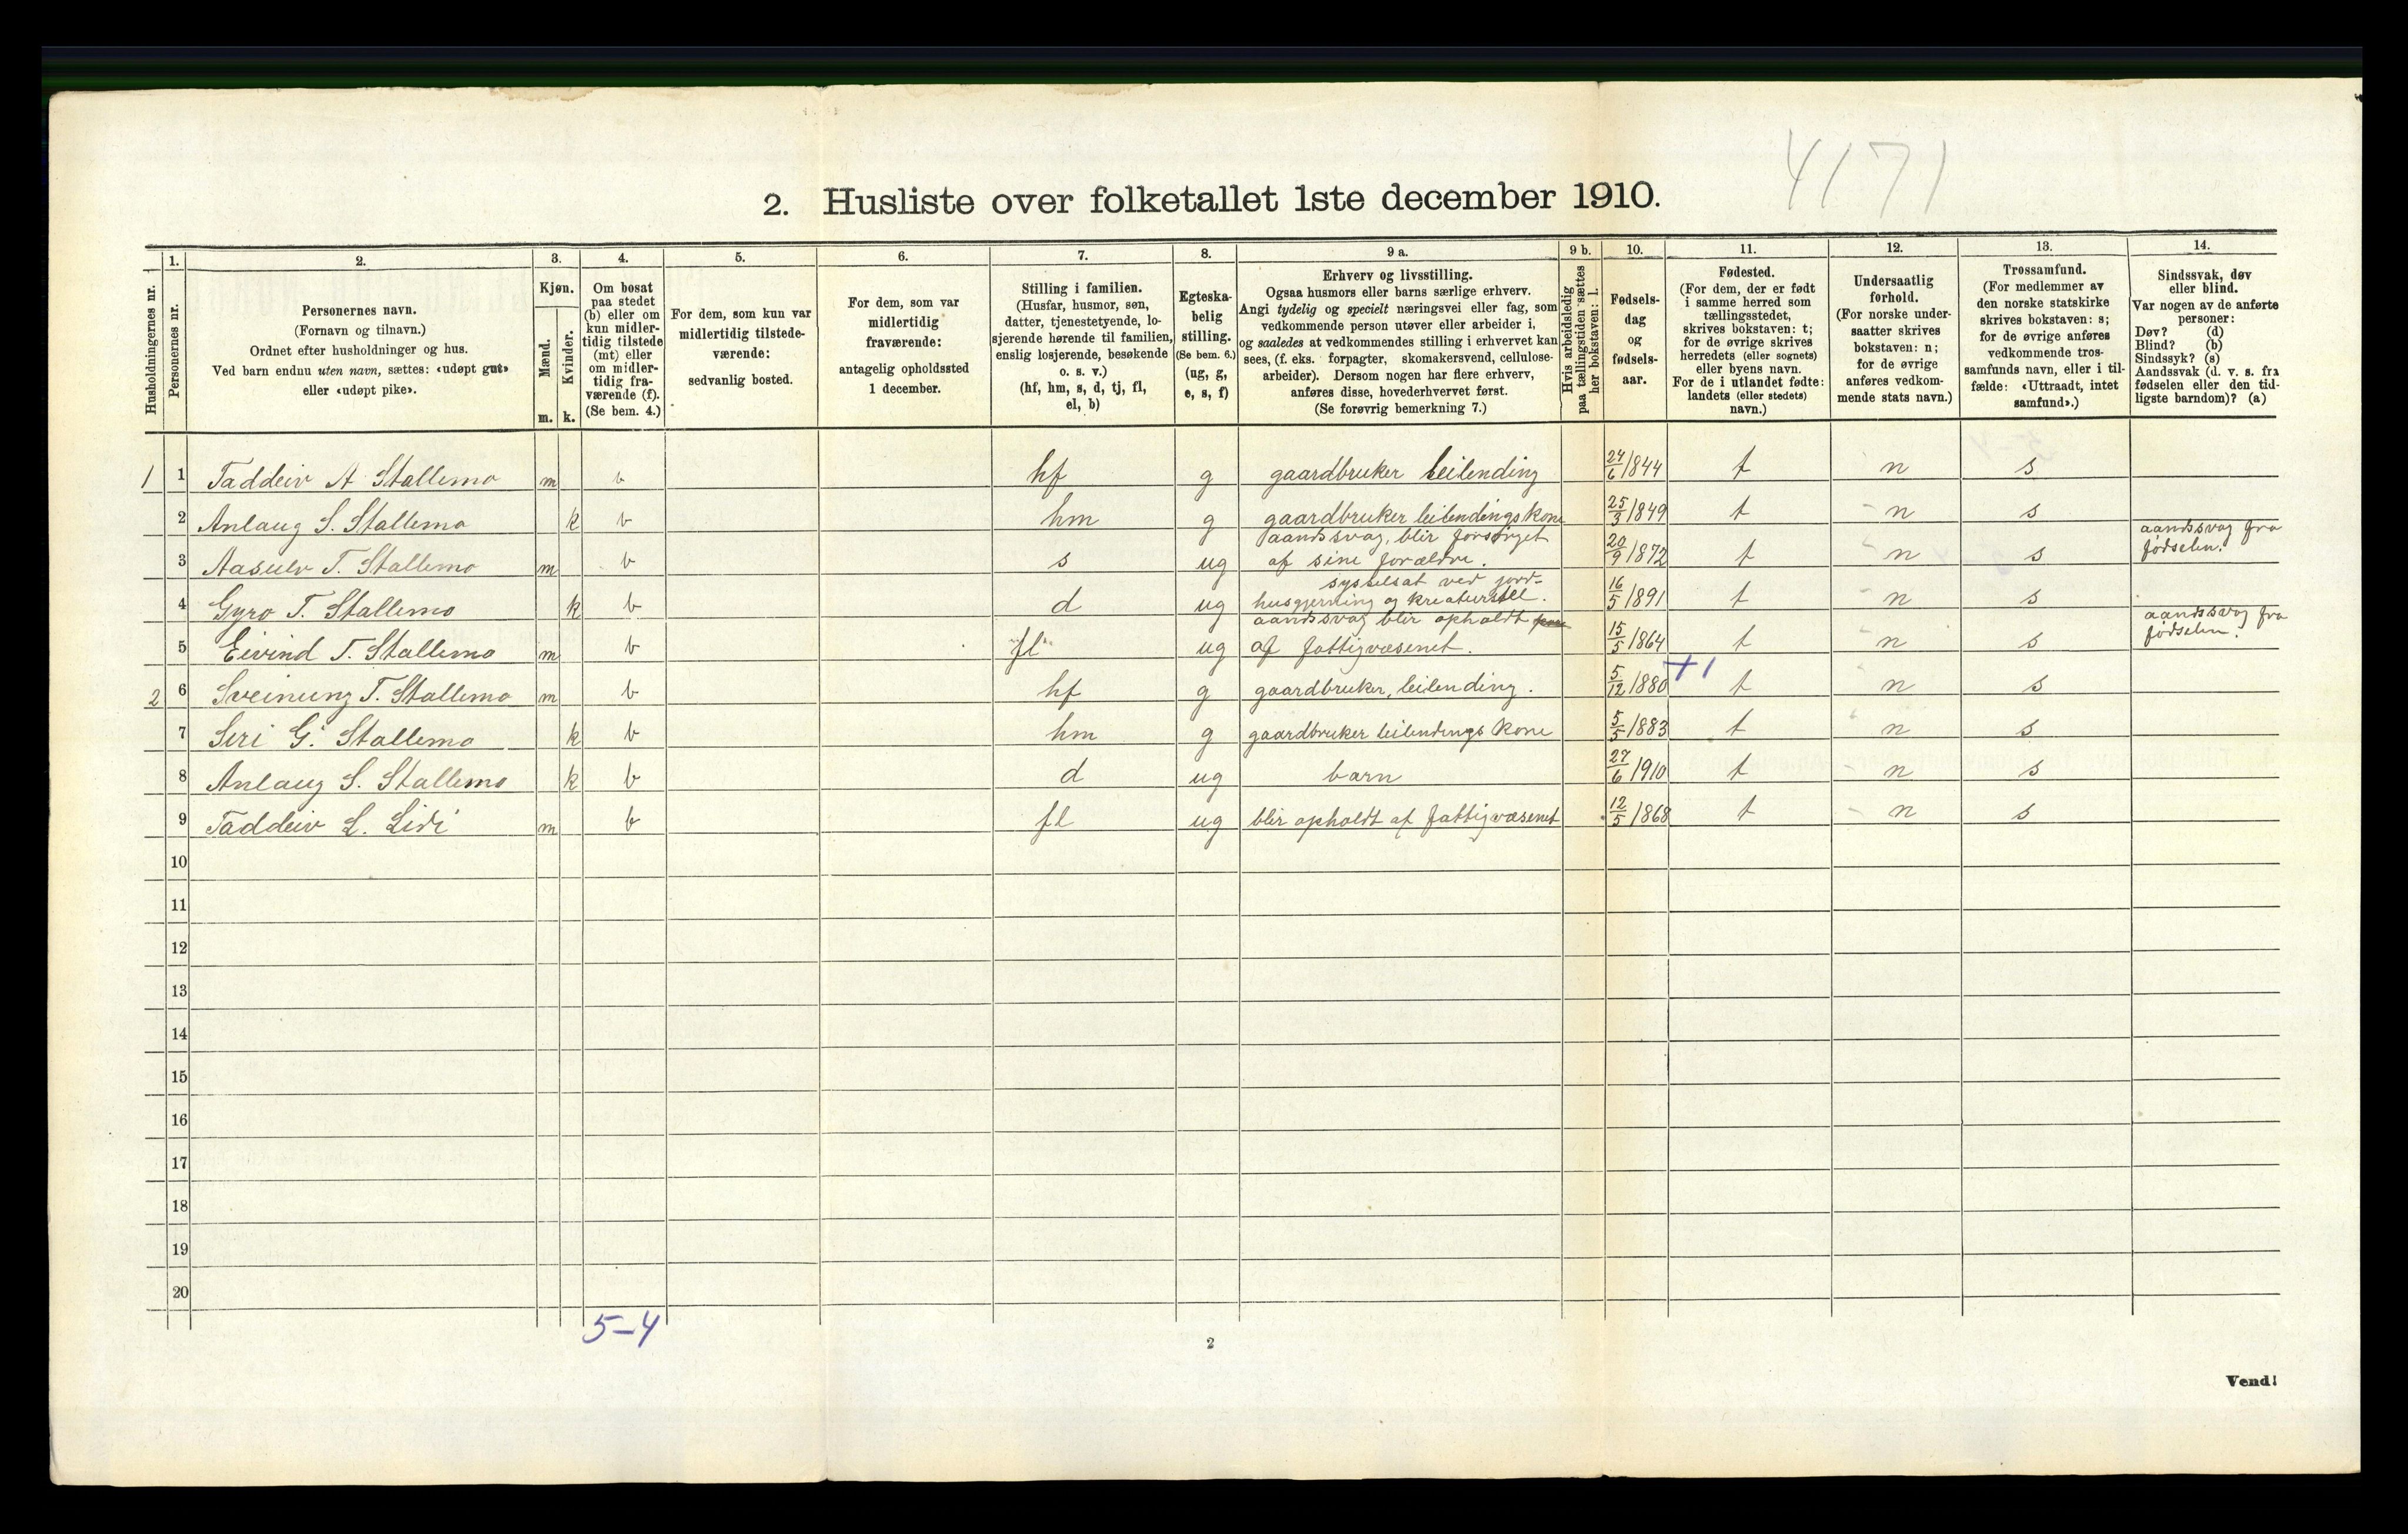 4171
2. Husliste over folketallet 1ste december 1910.
Husholdningernes nr.
1.
Personernes nr.
2.
Personernes navn.
(Fornavn og tilnavn.)
Ordnet efter husholdninger og hus.
Ved barn endnu uten navn, sættes: «udøpt gut»
eller «udøpt pike».
3.
Kjøn.
Mænd.
m.
Kvinder.
k.
4.
Om bosat
paa stedet
(b) eller om
kun midler-
tidig tilstede
(mt) eller
om midler-
tidig fra-
værende (f).
(Se bem. 4.)
5.
For dem, som kun var
midlertidig tilstede-
værende:
sedvanlig bosted.
6.
For dem, som var
midlertidig
fraværende:
antagelig opholdssted
1 december.
7.
Stilling i familien.
(Husfar, husmor, søn,
datter, tjenestetyende, lo-
sjerende hørende til familien,
enslig losjerende, besøkende
o. s. v.)
(hf, hm, s, d, tj, fl,
el, b)
8.
Egteska-
belig
stilling.
(Se bem. 6.)
(ug, g,
e, s, f)
9 a.
Erhverv og livsstilling.
Ogsaa husmors eller barns særlige erhverv.
Angi tydelig og specielt næringsvei eller fag, som
vedkommende person utøver eller arbeider i,
og saaledes at vedkommendes stilling i erhvervet kan
sees, (f. eks. forpagter, skomakersvend, cellulose-
arbeider). Dersom nogen har flere erhverv,
anføres disse, hovederhvervet først.
(Se forøvrig bemerkning 7.)
9 b.
Hvis arbeidsledig
paa tællingstiden sættes
her bokstaven: l.
10.
Fødsels-
dag
og
fødsels-
aar.
11.
Fødested.
(For dem, der er født
i samme herred som
tællingsstedet,
skrives bokstaven: t;
for de øvrige skrives
herredets (eller sognets)
eller byens navn.
For de i utlandet fødte:
landets (eller stedets)
navn.)
12.
Undersaatlig
forhold.
(For norske under-
saatter skrives
bokstaven: n;
for de øvrige
anføres vedkom-
mende stats navn.)
13.
Trossamfund.
(For medlemmer av
den norske statskirke
skrives bokstaven: s;
for de øvrige anføres
vedkommende tros-
samfunds navn, eller i til-
fælde: «Uttraadt, intet
samfund».)
14.
Sindssvak, døv
eller blind.
Var nogen av de anførte
personer:
Døv? (d)
Blind? (b)
Sindssyk? (s)
Aandssvak (d. v. s. fra
fødselen eller den tid-
ligste barndom)? (a)
1 1 Taddeiv A Stallemo m b hf g gaardbruker leilending 24/6 1844 t n s
2 Anlaug S. Stallemo k b hm g gaardbruker leilendings kone 25/3 1849 t n s
aandssvag, blir forsørget aandssvag fra
3 Aasulv T. Stallemo m b s ug af sine forældre. 20/9 1872 t n s fødselen.
sysselsat ved jord-
4 Gyro T. Stallemo k b d ug husgjerning og kreaturstell. 16/5 1891 t n s
aandssvag blir opholdt aandssvag fra
5 Eivind T. Stallemo m b fl ug af fattigvæsenet. 15/5 1864 t n s fødselen.
2 6 Sveinung T. Stallemo m b hf g gaardbruker, leilending. 5/12 1880 +1 t n s
7 Seri G. Stallemo k b hm g gaardbruker leilendings kone 5/5 1883 t n s
8 Anlaug S. Stallemo k b d ug barn 27/6 1910 t n s
9 Taddeiv L. Lidi m b fl ug blir opholdt af fattigvæsenet 12/5 1868 t n s
10
11
12
13
14
15
16
17
18
19
20
5-4
2
Vend!